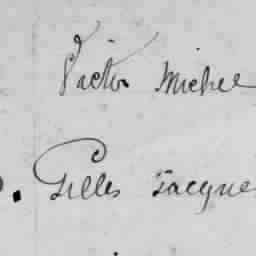 Victor Michel
Gilles Jacques